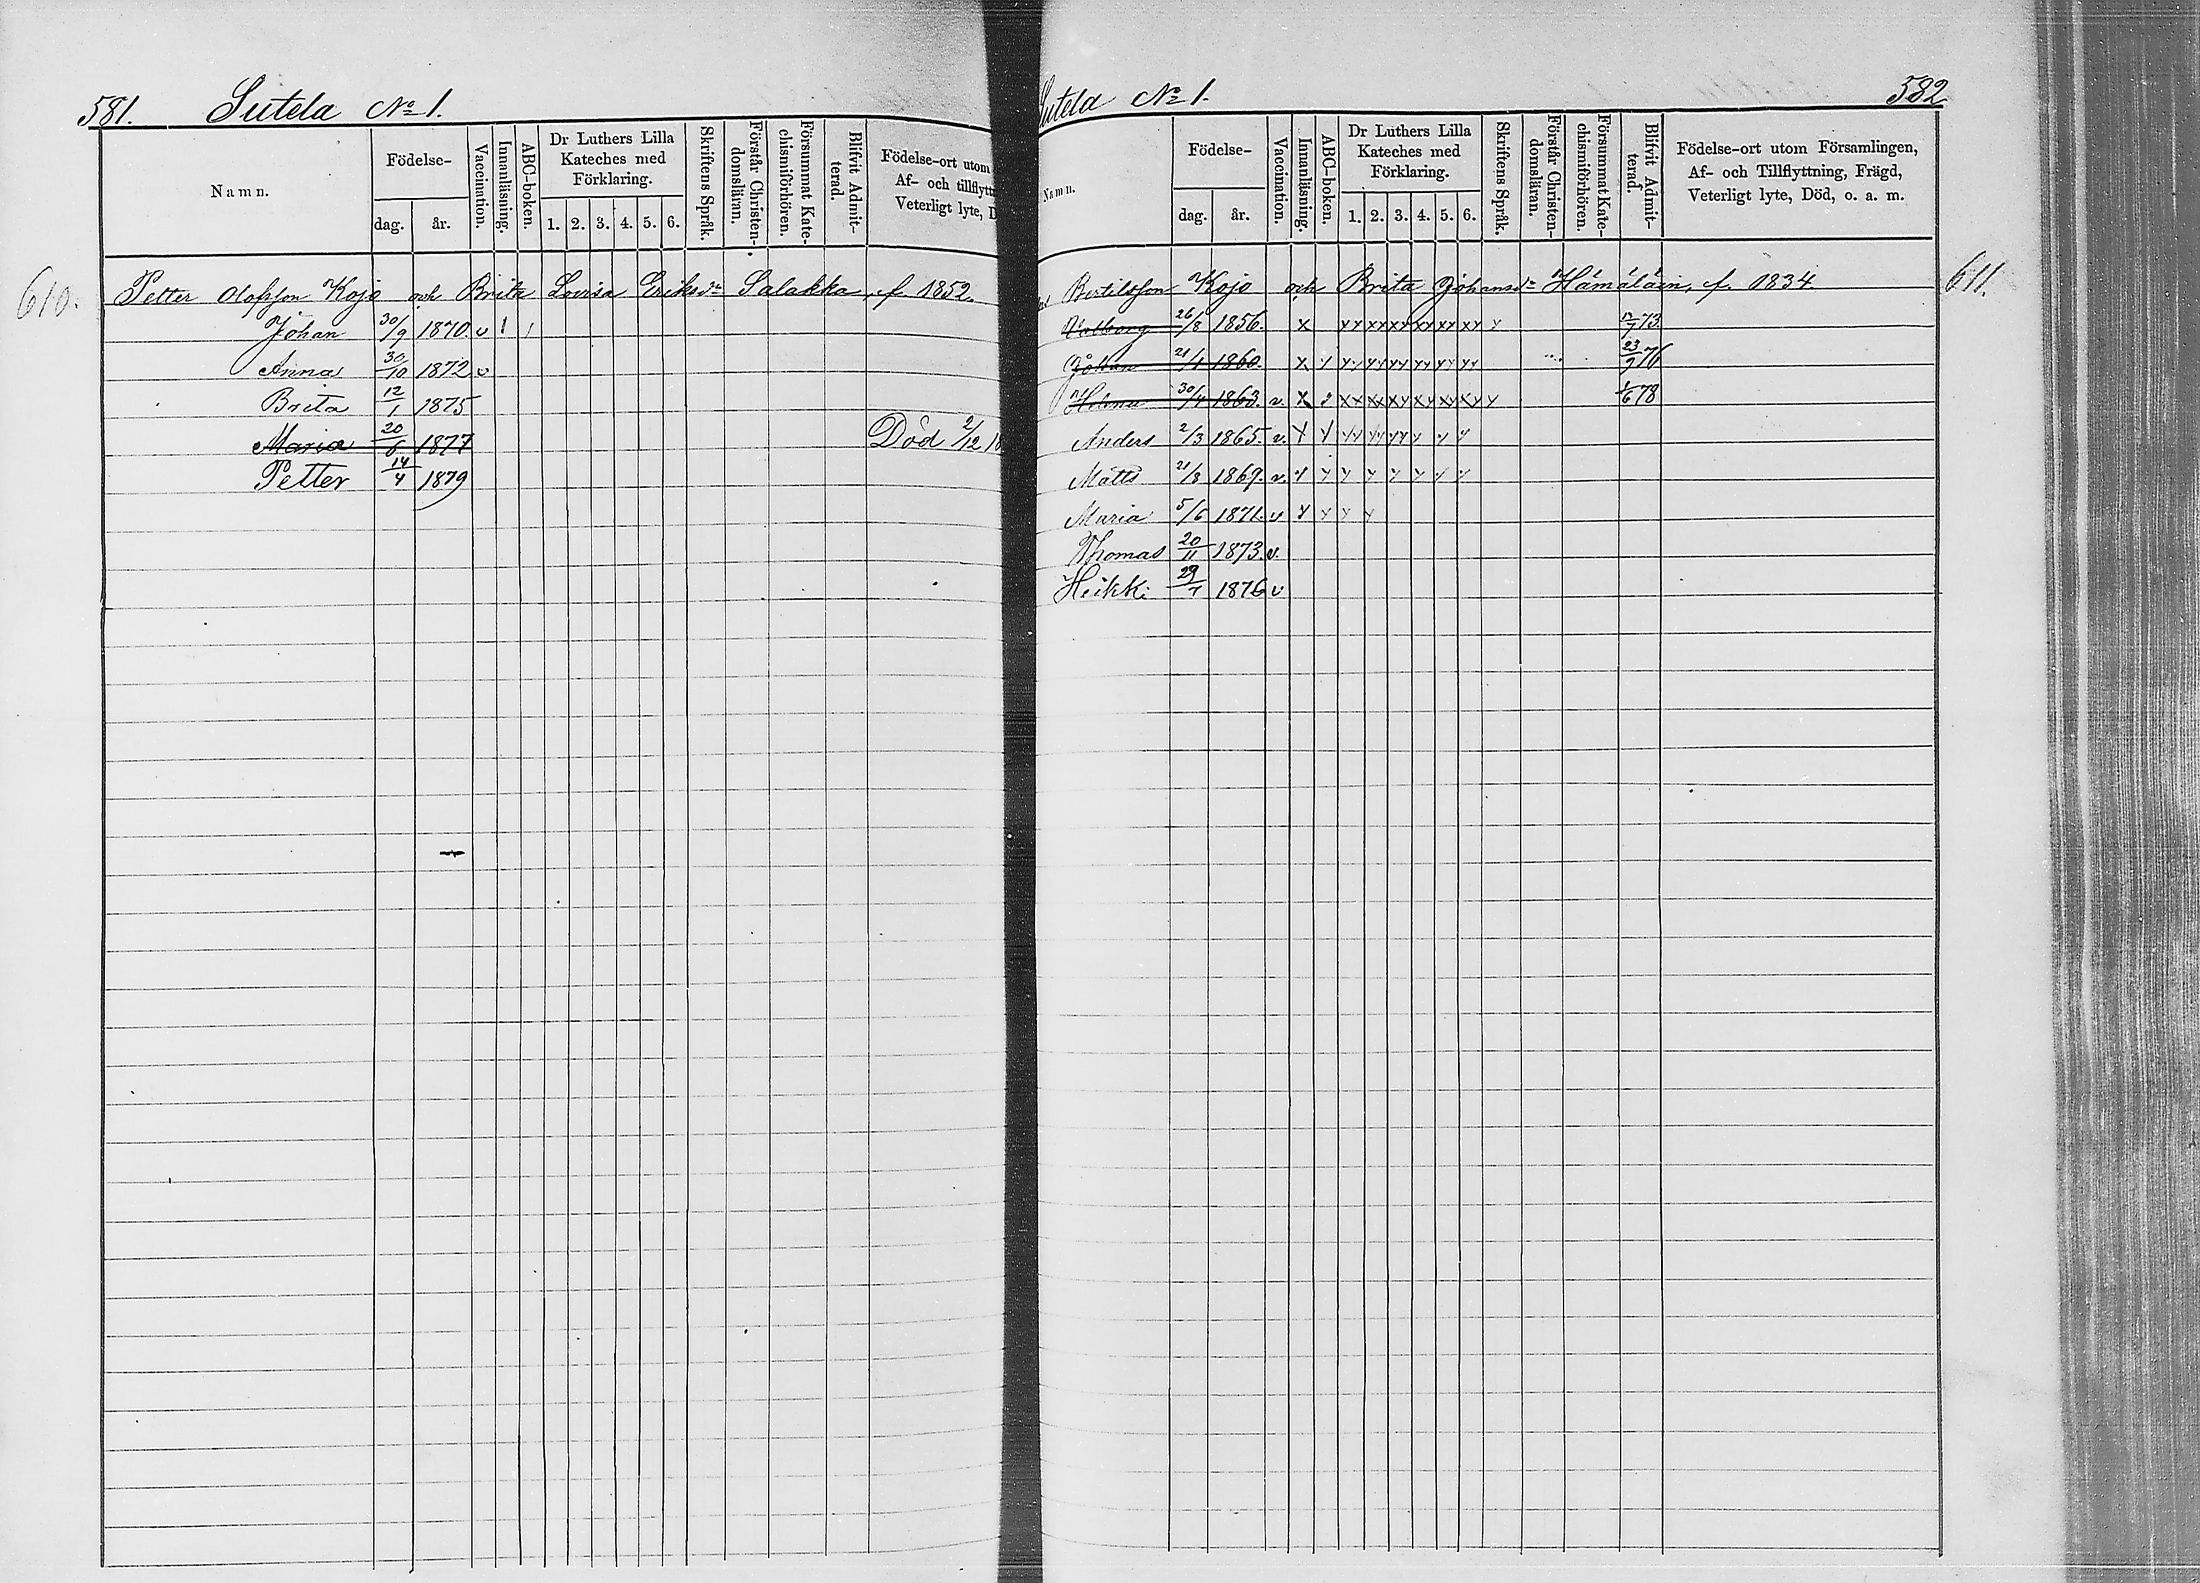 581. Sutela No 1.
Namn.
Födelse-
dag. år.
Vaccination.
Innanläsning.
ABC-boken.
Dr Luthers Lilla
Kateches med
Förklaring.
1. 2. 3. 4. 5. 6.
Skriftens Språk.
Förstår Christen-
domsläran.
Försummat Kate-
chismiförhören.
Blifvit Admit-
terad.
Födelse-ort utom
Af- och tillflyttn
Veterligt lyte, D
610.
Petter Olofsson Kojo och Brita Lovisa Eriksdr Salakka, f. 1852.
Johan 30/9 1870. v 1 1
Anna 30/10 1872 v
Brita 12/1 1875
Maria 20/6 1877 Död 2/12 18
Petter 14/4 1879
Sutela No 1. 582
Namn.
Födelse-
dag år.
Vaccination.
Innanläsning.
ABC-boken.
Dr Luthers Lilla
Kateches med
Förklaring.
1. 2. 3. 4. 5. 6.
Skriftens Språk.
Förstår Christen-
domsläran.
Försummat Kate-
chismiförhören.
Blifvit Admit-
terad.
Födelse-ort utom Församlingen,
Af- och Tillflyttning, Frägd,
Veterligt lyte, Död, o. a. m.
611.
Bertilsson Kojo och Brita Johansdr Hämäläin, f. 1834.
Valborg 26/8 1856. x yy xx xx xx xx xy y 73.
Johan 21/1 1860. x y yy yy yy yy yy yy 23/9 76
Helena 30/4 1863. v. x xx xx xy xy xy xy y 1/6 78
Anders 2/3 1865. v. y y yy yy yy y y y
Matts 21/8 1869. v. y y y y y y y y
Maria 5/6 1871. v y y y y
Thomas 20/11 1873. v.
Heikki 29/1 1876 v